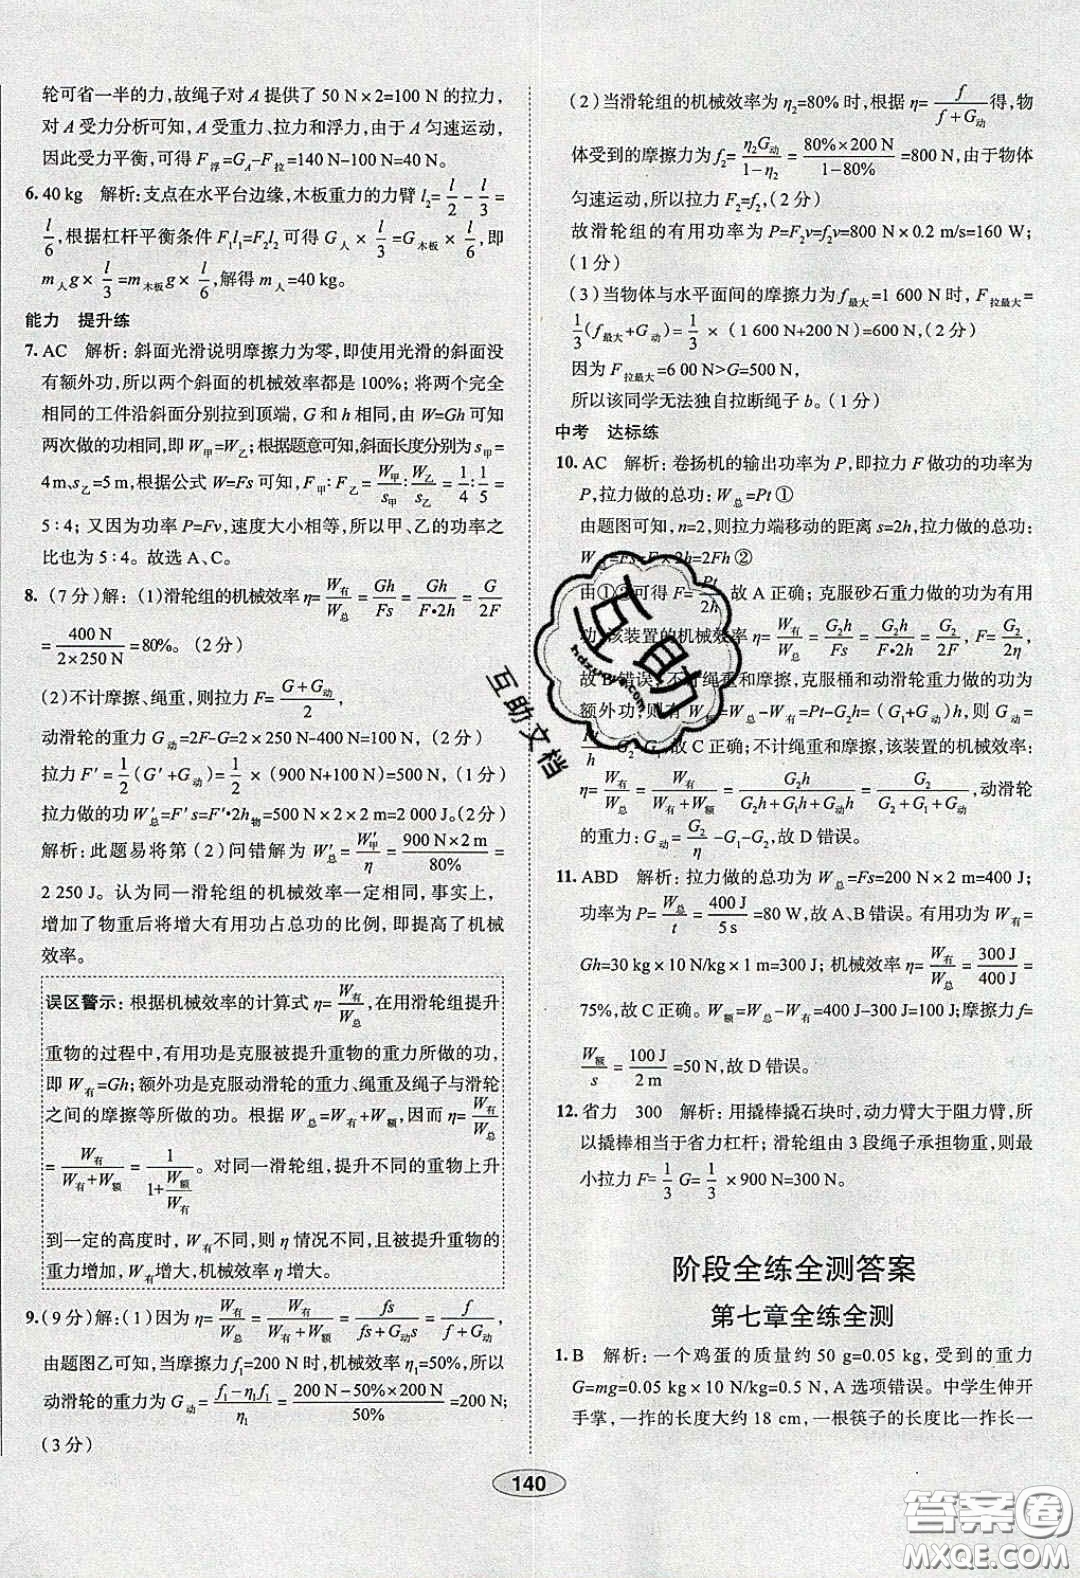 轮可省一半的力,故绳子对 A 提供了 50 N×2=100 N 的拉力,
对 A 受力分析可知,A 受重力、拉力和浮力,由于 A 匀速运动,
因此受力平衡,可得 F浮=GA-F拉=140 N-100 N=40 N。
6. 40 kg 解析:支点在水平台边缘,木板重力的力臂 l₂= l/2 - l/3 =
l/6,根据杠杆平衡条件 F₁l₁=F₂l₂ 可得:G人× l/3 =G木板× l/6,即
m人g× l/3 =m木板g× l/6,解得 m人=40 kg。
能力 提升练
7. AC 解析:斜面光滑说明摩擦力为零,即使用光滑的斜面没
有额外功,所以两个斜面的机械效率都是 100%;将两个完全
相同的工件沿斜面分别拉到顶端,G 和 h 相同,由 W=Gh 可知
两次做的功相同,即 W甲=W乙;根据题意可知,斜面长度分别为 s甲=
4 m、s乙=5 m,根据公式 W=Fs 可知,F甲:F乙= W甲/s甲 : W乙/s乙 = 1/4 : 1/5 =
5:4;又因为功率 P=Fv,速度大小相等,所以甲、乙的功率之
比也为 5:4。故选 A、C。
8. (7 分)解:(1)滑轮组的机械效率 η= W有/W总 = Gh/Fs = Gh/F·2h = G/2F
= 400 N/2×250 N =80%。(2 分)
(2)不计摩擦、绳重,则拉力 F= G+G动/2 ,
动滑轮的重力 G动=2F-G=2×250 N-400 N=100 N,(2 分)
拉力 F′= 1/2 (G′+G动)= 1/2 ×(900 N+100 N)=500 N,(1 分)
拉力做的功 W′总=F′s=F′·2h物=500 N×2×2 m=2 000 J。(2分)
解析:此题易将第(2)问错解为 W′总= W′甲/η = 900 N×2 m/80% =
2 250 J。认为同一滑轮组的机械效率一定相同,事实上,
增加了物重后将增大有用功占总功的比例,即提高了机械
效率。
误区警示:根据机械效率的计算式 η= W有/W总 ,在用滑轮组提升
重物的过程中,有用功是克服被提升重物的重力所做的功,
即 W有=Gh;额外功是克服动滑轮的重力、绳重及绳子与滑轮
之间的摩擦等所做的功。根据 W总=W有+W额,因而 η= W有/W总
= W有/W有+W额 = 1/1+W额/W有 。对同一滑轮组,提升不同的重物上升
到一定的高度时,W有不同,则 η 情况不同,且提升重物的
重力增加,W有增大,机械效率 η 增大。
9. (9 分)解:(1)因为 η= W有/W总 = W有/W有+W额 = fs/fs+G动s = f/f+G动 ,
由题图乙可知,当摩擦力 f₁=200 N 时,机械效率 η₁=50%,所以
动滑轮的重力为 G动= f₁-η₁f₁/η₁ = 200 N-50%×200 N/50% =200 N,
(3 分)
(2)当滑轮组的机械效率为 η₂=80%时,根据 η= f/f+G动 得,物
体受到的摩擦力为 f₂= η₂G动/1-η₂ = 80%×200 N/1-80% =800 N,由于物体
匀速运动,所以拉力 F₂=f₂,(2 分)
故滑轮组的有用功率为 P=F₂v=f₂v=800 N×0.2 m/s=160 W;
(1 分)
(3)当物体与水平面间的摩擦力为 f最大=1 600 N 时,F拉最大=
1/3 (f最大+G动)= 1/3 ×(1 600 N+200 N)=600 N,(2 分)
因为 F拉最大=6 00 N>G=500 N,
所以该同学无法独自拉断绳子 b。(1 分)
中考 达标练
10. AC 解析:卷扬机的输出功率为 P,即拉力 F 做功的功率为
P,拉力做的总功:W总=Pt ①
由题图可知,n=2,则拉力端移动的距离 s=2h,拉力做的总功:
W总=Fs=F×2h=2Fh ②
由①②可得 F= Pt/2h ,故 A 正确;克服砂石重力做的功为有用
功,该装置的机械效率 η= W有/W总 = G₂h/Fs = G₂h/F·2h = G₂/2F ,F= G₂/2η ,
故 B 错误;不计绳重和摩擦,克服桶和动滑轮重力做的功为
额外功,则有 W额=W总-W有=Pt-G₂h=(G₁+G动)h,则 G动=
Pt/h -G₂-G₁,故 C 正确;不计绳重和摩擦,该装置的机械效率:
η= W有/W总 = W有/W有+W额 = G₂h/G₂h+G₁h+G动h = G₂/G₂+G₁+G动 ,动滑轮
的重力:G动= G₂/η -G₁-G₂,故 D 错误。
11. ABD 解析:拉力做的总功为 W总=Fs=200 N×2 m=400 J,
功率为 P= W总/t = 400 J/5 s =80 W,故 A、B 错误。有用功为 W有=
Gh=30 kg×10 N/kg×1 m=300 J;机械效率 η= W有/W总 = 300 J/400 J =
75%,故 C 正确。W额=W总-W有=400 J-300 J=100 J;摩擦力 f=
W额/s = 100 J/2 m =50 N,故 D 错误。
12. 省力 300 解析:用撬棒撬石块时,动力臂大于阻力臂,所
以撬棒相当于省力杠杆;滑轮组由 3 段绳子承担物重,则最
小拉力 F= 1/3 G= 1/3 ×900 N=300 N。
阶段全练全测答案
第七章全练全测
1. B 解析:一个鸡蛋的质量约 50 g=0.05 kg,受到的重力
G=mg=0.05 kg×10 N/kg=0.5 N,A 选项错误。中学生伸开
手掌,一拃的长度大约 18 cm,一根筷子的长度比一拃长一
140
互助
hdzuoye.com
互助文档
答案圈
MXQE.COM